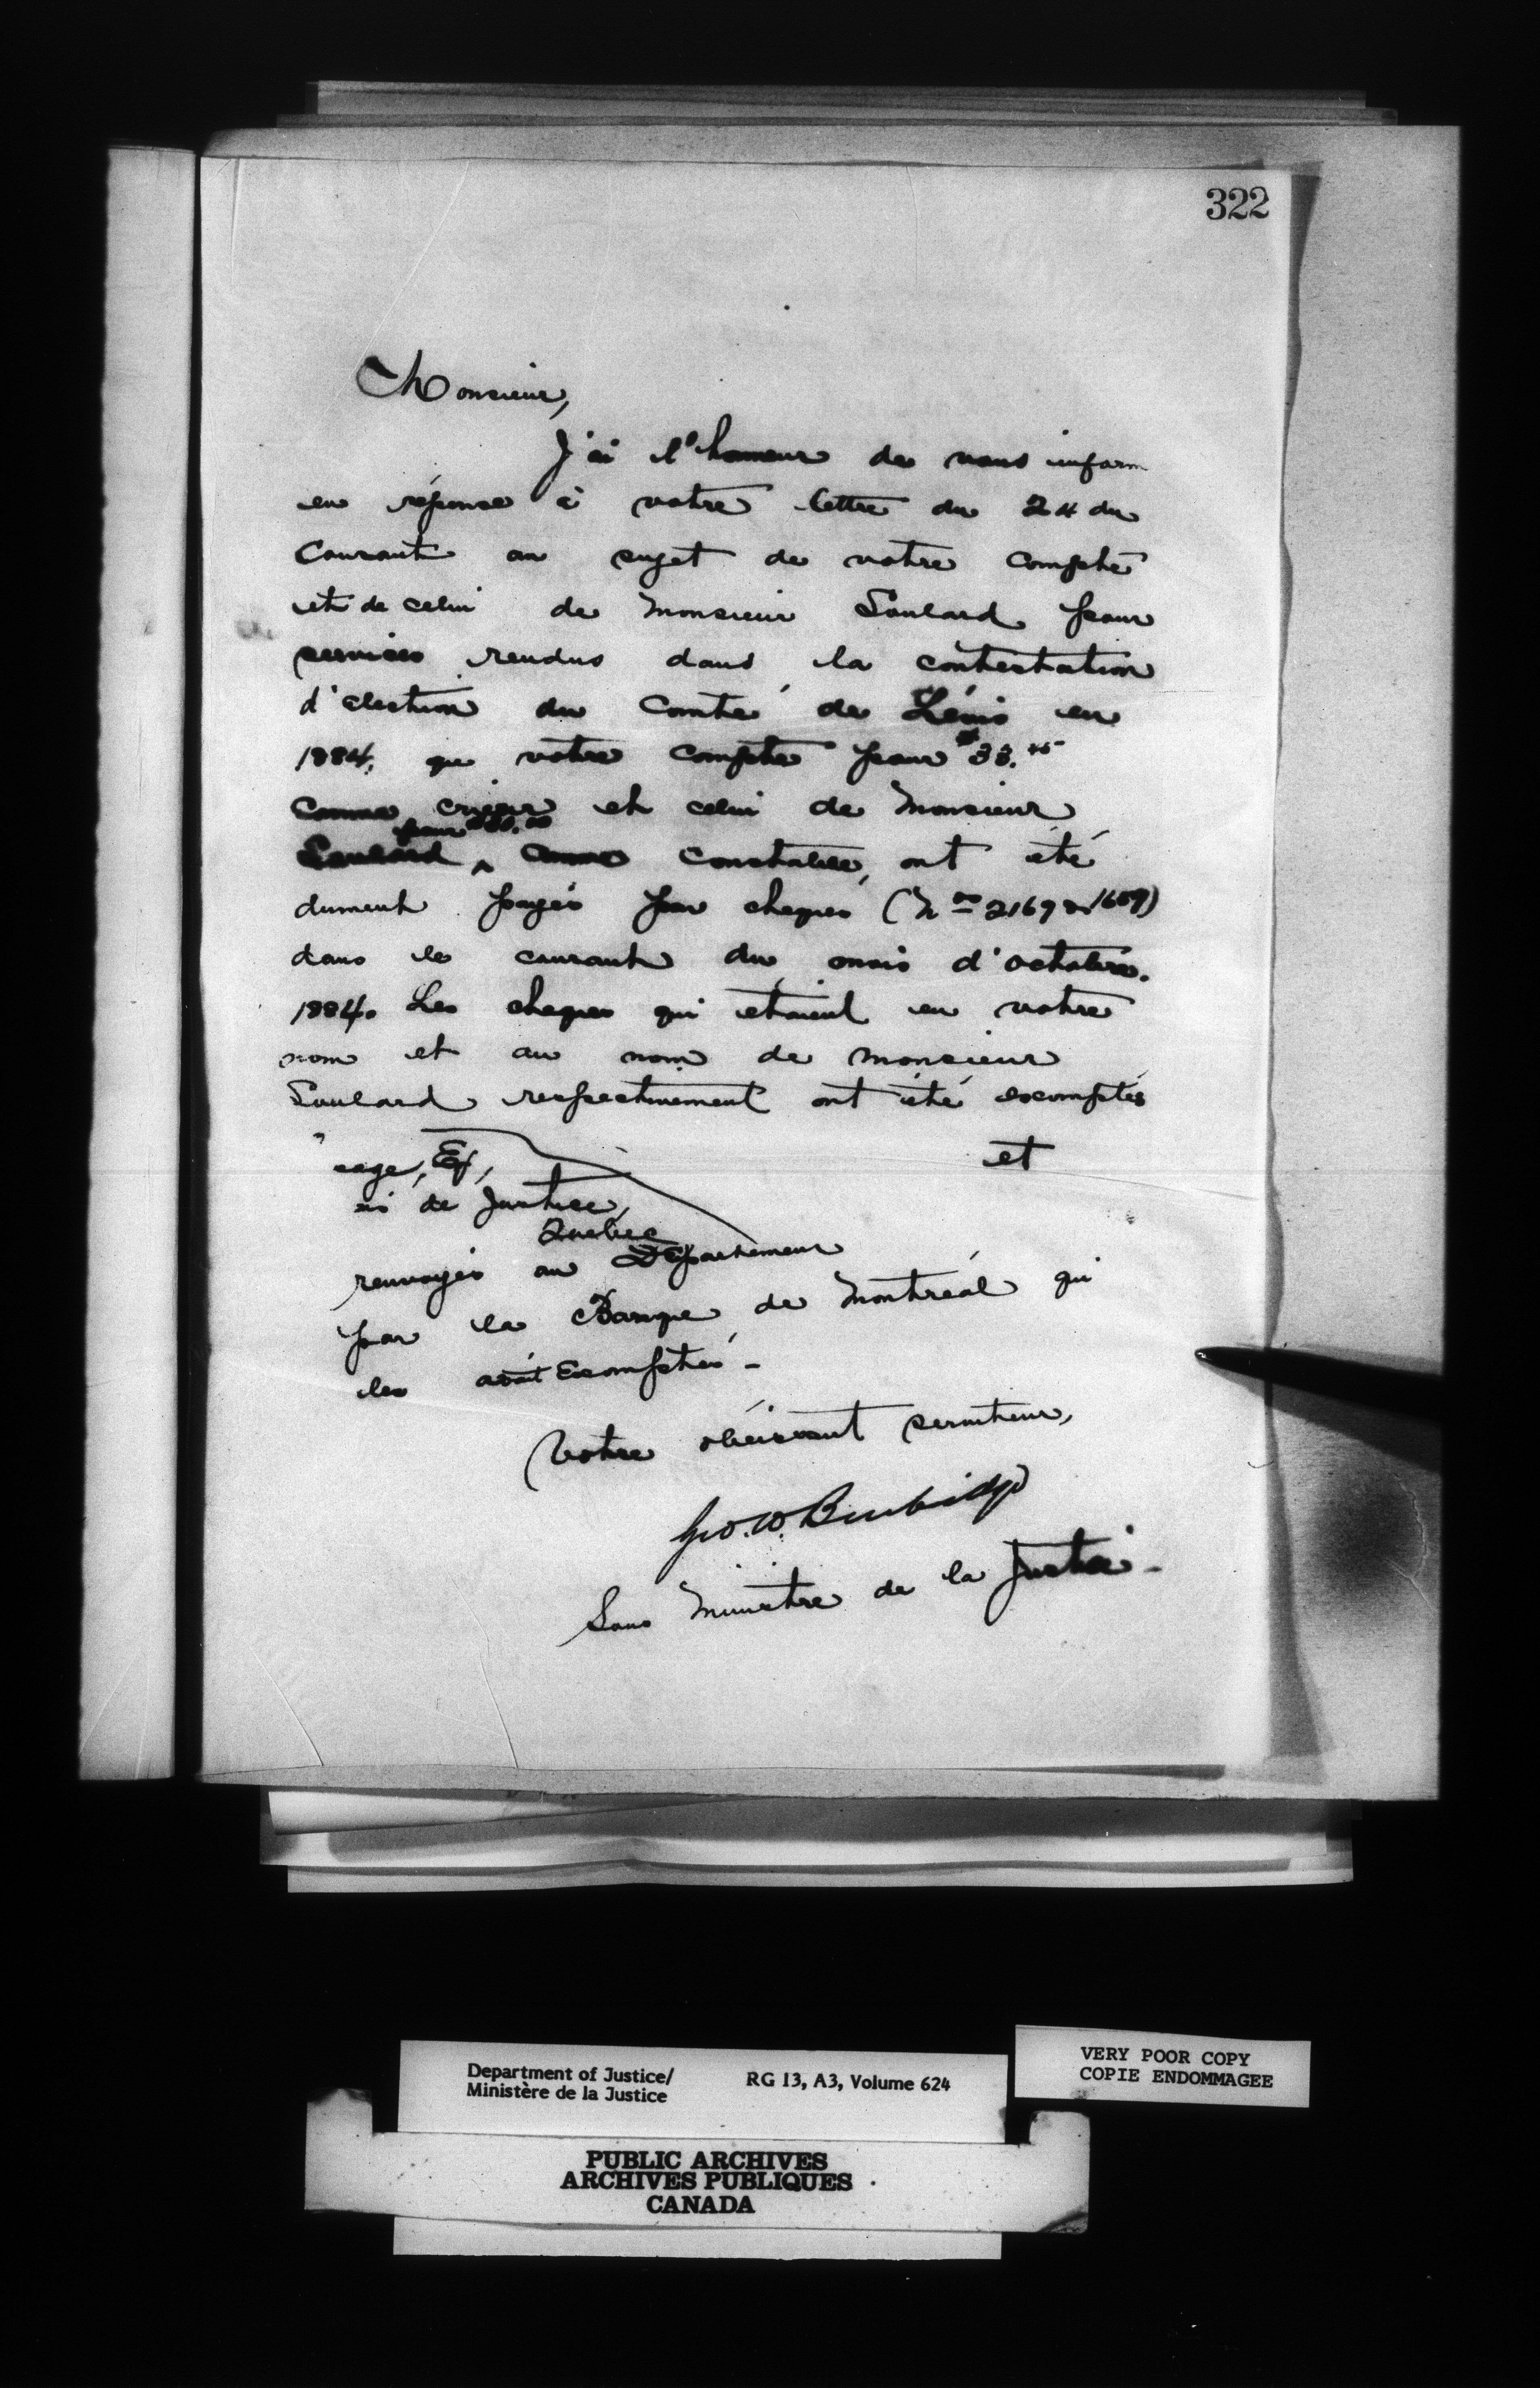 322
Monsieur,
J'ai l'honneur de vous inform
en réponse à votre lettre du 24 du
Courant au sujet de votre compte
et de celui de Monsieur Soulard pour
services rendus dans la contestation
d'élection du Comté de Lévis en
1884, que votre compte pour $33.
Comme crieur et celui de Monsieur
pour
Soulard ^ comme Constable, ont été
dument payés par cheques (Nos 2169 & 1689)
dans le courant du mois d'octobre.
1884. Les cheques qui etaient en votre
nom et au nom de Monsieur
Soulard respectivement ont été escomptés
et
sage, Eq,
is de Justice,
Quebec
renvoyés au Département
par la Banque de Montréal qui
les avait Escomptés -
Votre obéissant serviteur,
Geo. W. Burbidge
Sous Ministre de la Justice -
Department of Justice/
Ministère de la Justice
RG 13, A3, Volume 624
VERY POOR COPY
COPIE ENDOMMAGEE
PUBLIC ARCHIVES
ARCHIVES PUBLIQUES
CANADA